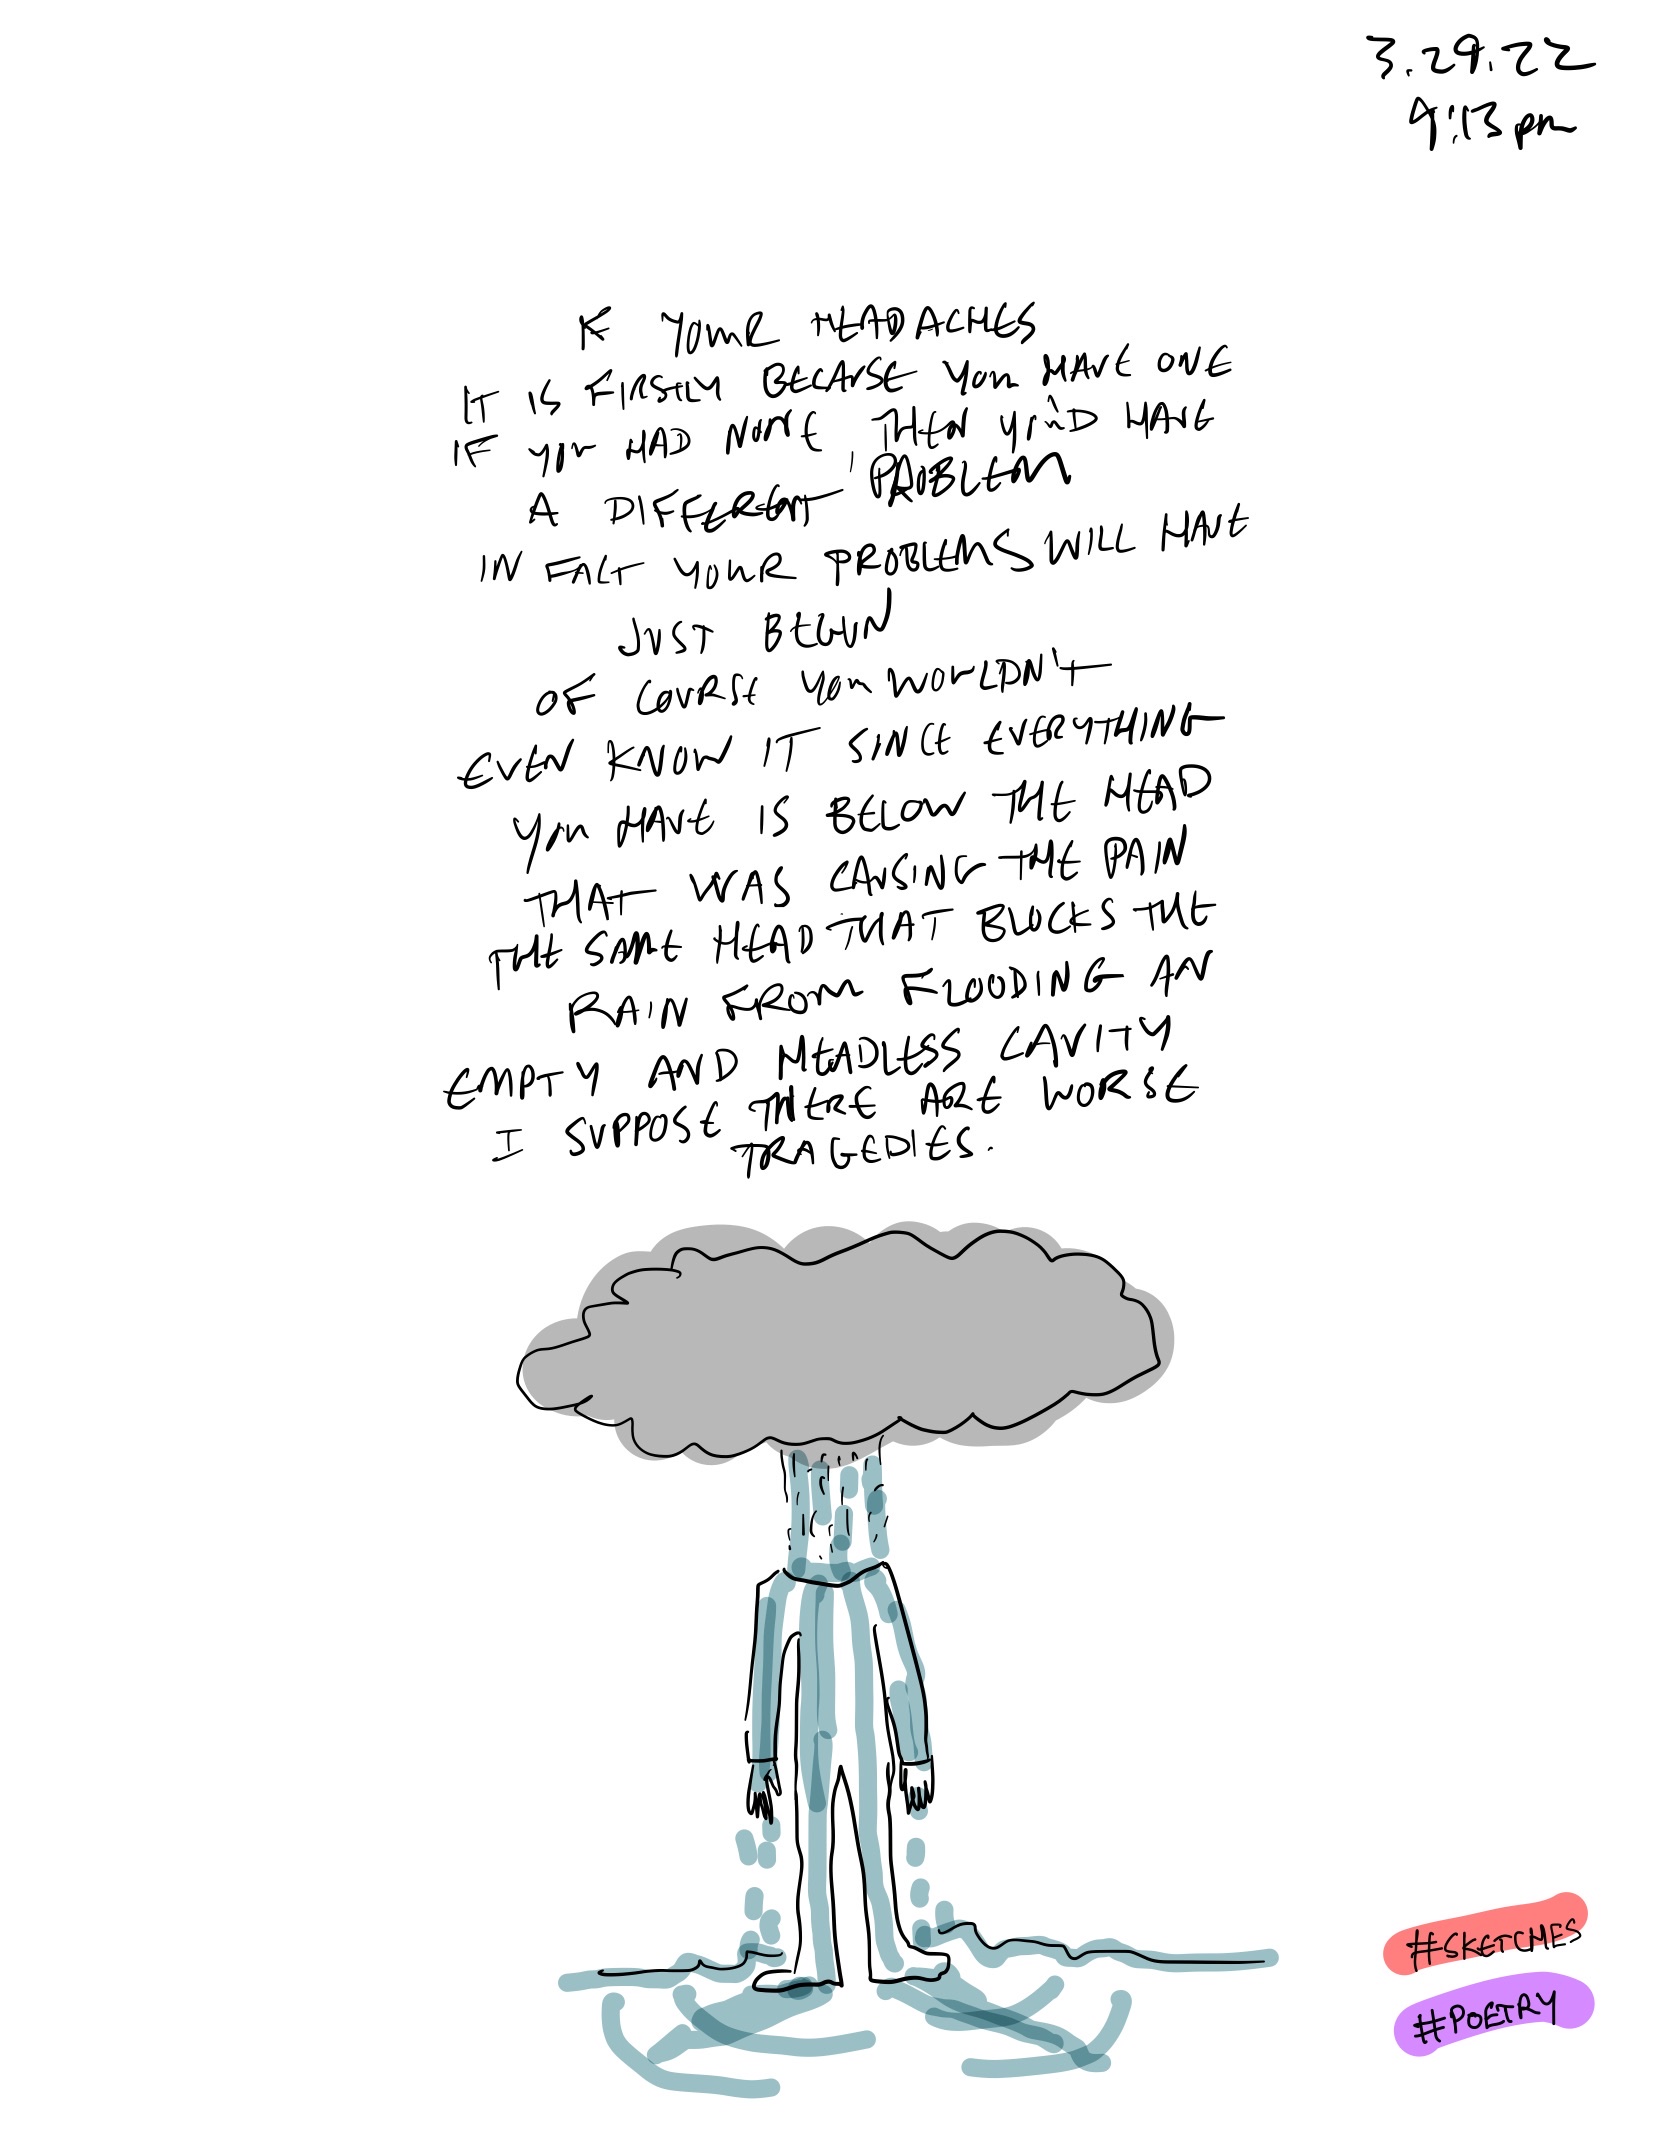 3.29.22
9:13 pm
IF YOUR HEADACHES
IT IS FIRSTLY BECAUSE YOU HAVE ONE
IF YOU HAD NONE, THEN YOU'D HAVE
A DIFFERENT PROBLEM
IN FACT YOUR PROBLEMS WILL HAVE
JUST BEGUN
OF COURSE YOU WOULDN'T
EVEN KNOW IT SINCE EVERYTHING
YOU HAVE IS BELOW THE HEAD
THAT WAS CAUSING THE PAIN
THE SAME HEAD THAT BLOCKS THE
RAIN FROM FLOODING AN
EMPTY AND HEADLESS CAVITY
I SUPPOSE THERE ARE WORSE
TRAGEDIES.
#SKETCHES
#POETRY